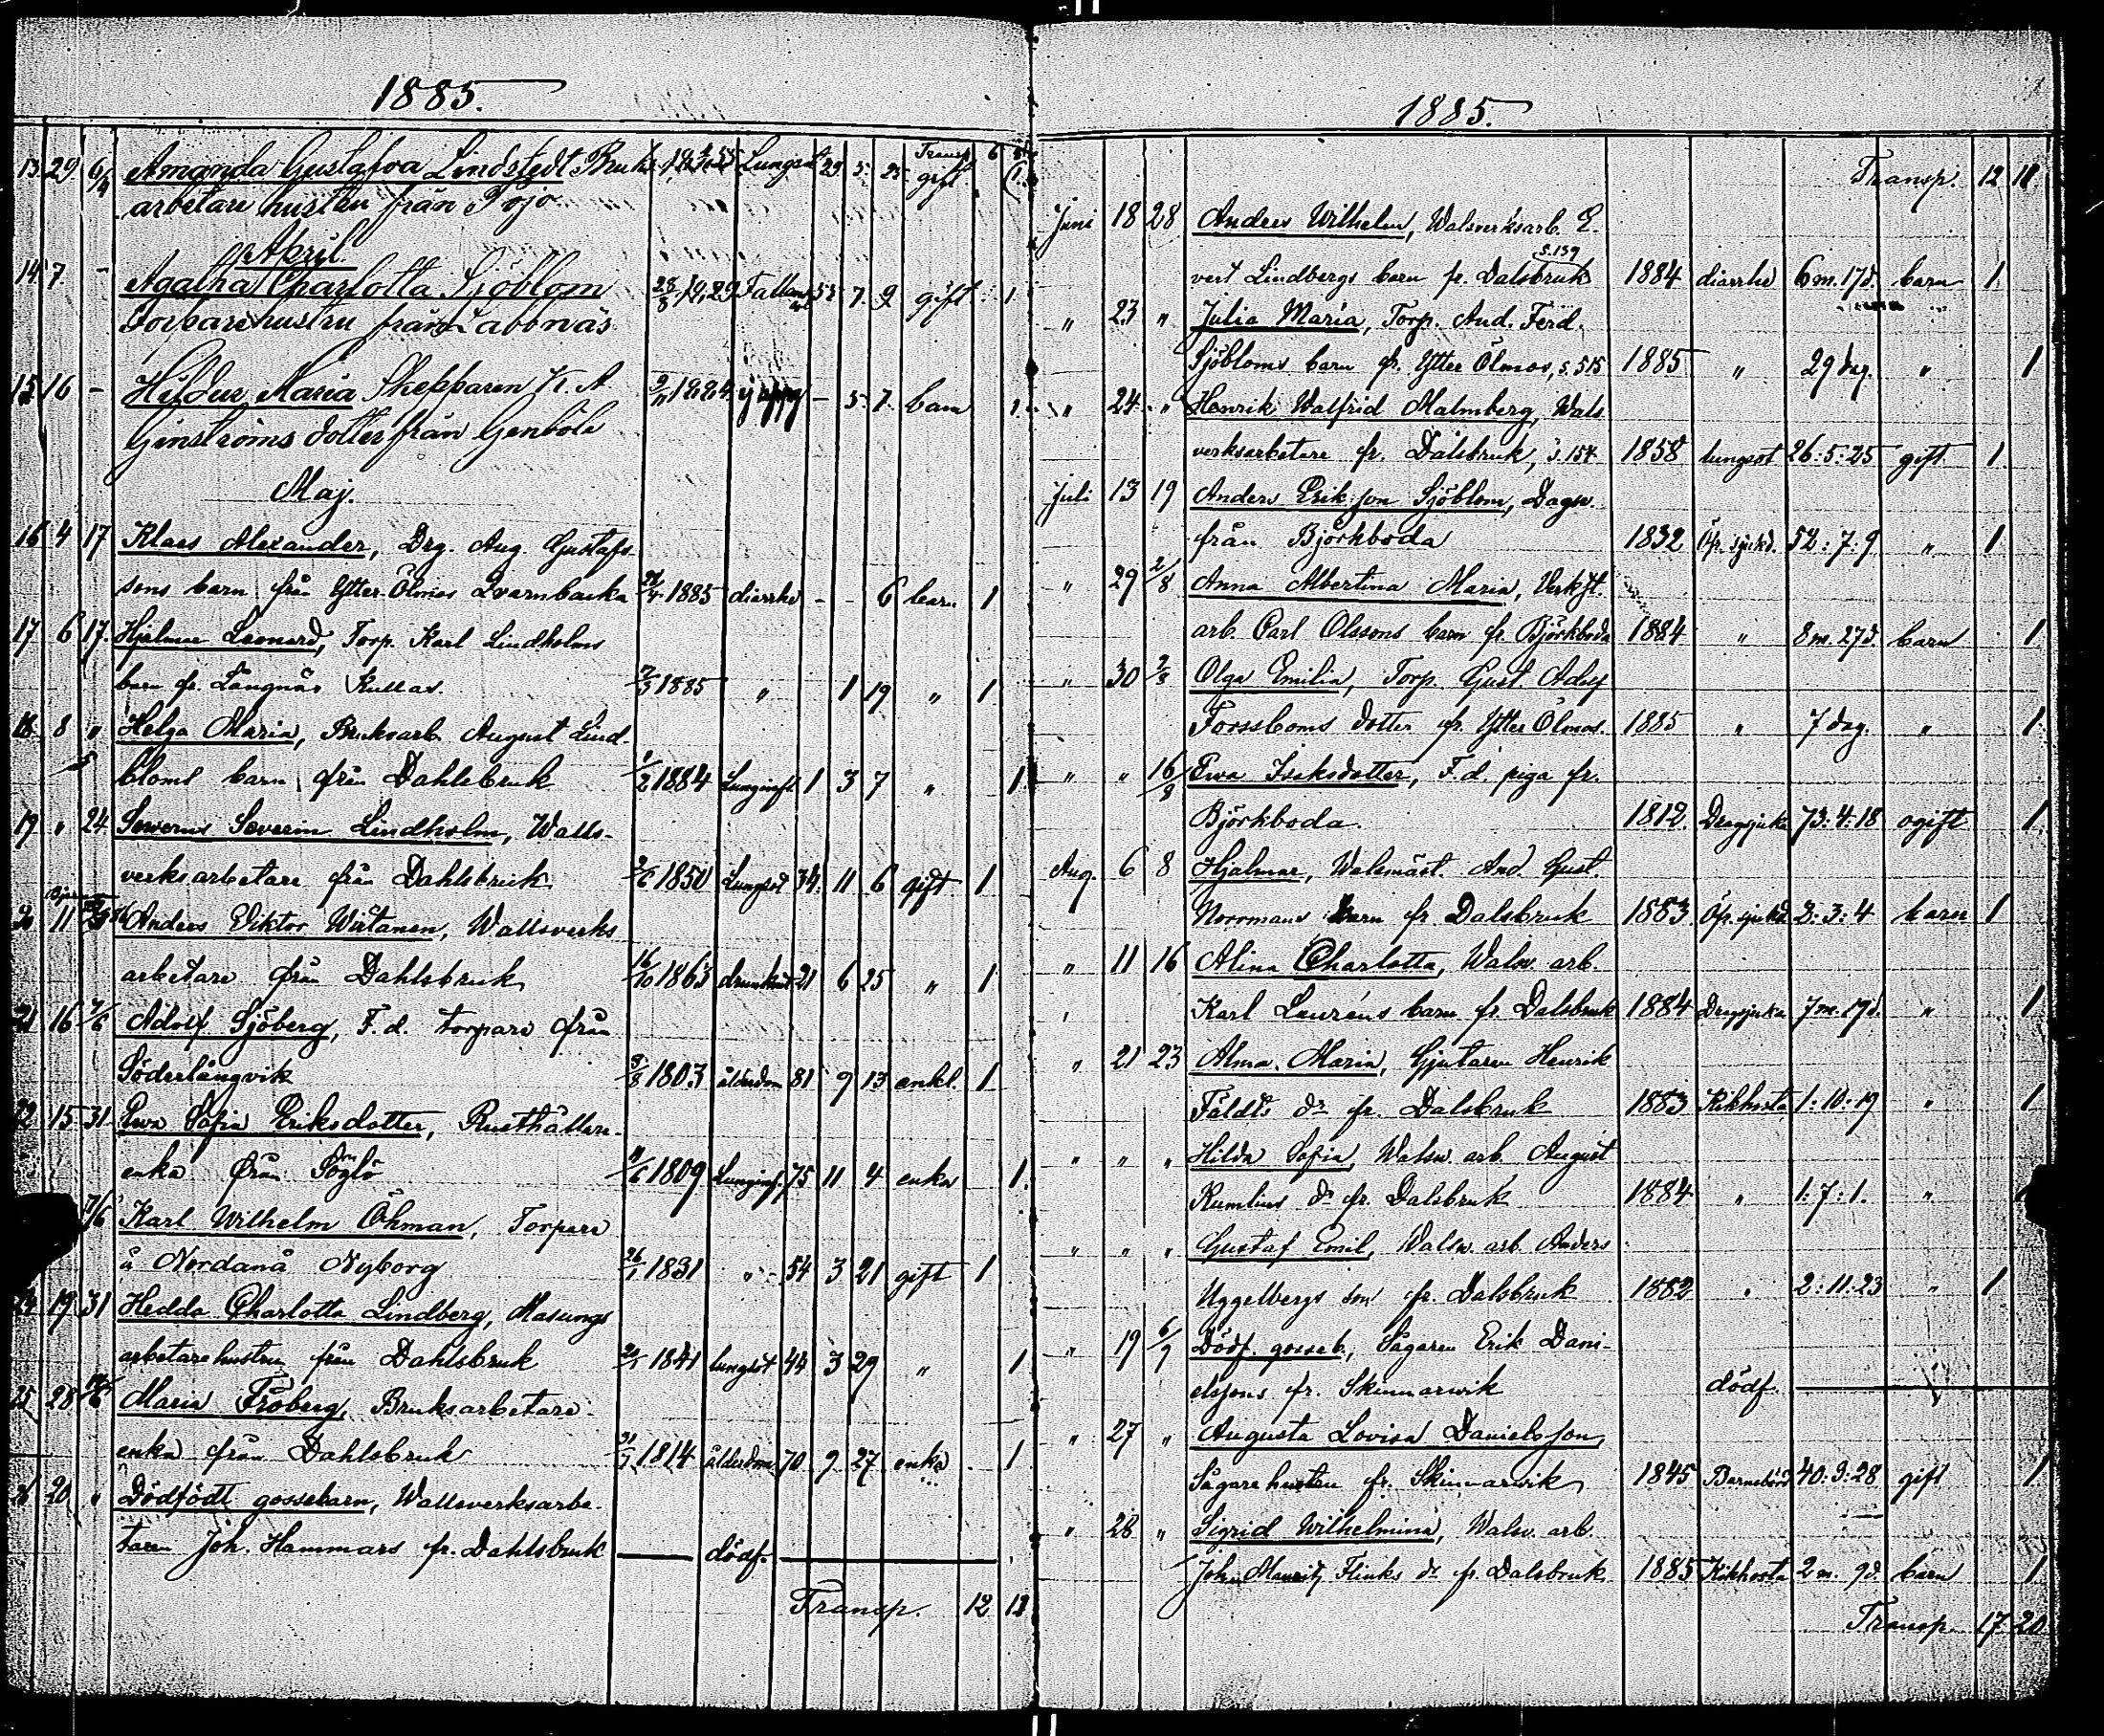 1885.
Transp. 6
13. 29. 6/4 Amanda Gustafva Lindstedt Bruks Lungsot 29 5. 25 gift 1.
arbetare hustru från Pojo
April.
14 7. - Agatha Charlotta Sjöblom 28/8 1829 55 7. 9 gift 1.
Torparehustru från Labbnäs
15. 16 - Hildur Maria Skepparen K. A 9/11 1884 - 5. 7. barn 1.
Genströms dotter från Genböle
Maj.
16 4 17 Klaes Alexander, Drg. Aug. Gustafs-
sons barn från Ytter Ölmos Qvarnbacka 28/4 1885 diarrhe - - 6 barn 1
17 6 17. Hjalmar Leonard, Torp. Karl Lindholms
barn fr. Långnäs Kullas. 1885 " 1 19 " 1
18 8 " Helga Maria, Bruksarb. August Lind-
bloms barn från Dahlsbruk 1/2 1884 Lunginfl 1 3 7 " 1.
19 " 24 Severin Lindholm, Walls-
verksarbetare från Dahlsbruk 1850 Lungsot 34. 11 6 gift 1
20 11 Anders Viktor Wirtanen, Wallsverks
arbetare från Dahlsbruk 16/10 1863 21 6 25 " 1
21 16 7/6 Adolf Sjöberg, F. d. torpare från
Söderlångvik 3/8 1803 ålderdom 81 9 13 enkl. 1
22 15 31 Ewa Sofia Eriksdotter, Rusthållare-
enka från Söglö 11/6 1809 Lunginf. 75 11 4 enka 1.
7/6 Karl Wilhelm Öhman, Torpare
å Nordanå Nyborg 26/1 1831 " 54 3 21 gift 1
24 19 31 Hedda Charlotta Lindberg, Masungs
arbetarehustru från Dahlsbruk 1841 lungsot 44 3 29 " 1
25 28 Maria Fröberg, Bruksarbetare-
enka från Dahlsbruk 31/7 1814 ålderdom 70 9 27 enka 1
26 20 " Dödfödt gossebarn, Wallsverksarbe-
taren Joh. Hammars fr. Dahlsbruk dödf.
Transp. 12 12
1885.
Transp. 12 11.
Juni 18 28 Anders Wilhelm, Walsverksarb. E.
s. 159
vert Lindbergs barn fr. Dalsbruk 1884 diarrhe 6 m. 17 d. barn 1.
" 23 " Julia Maria, Torp. And. Ferd.
Sjöbloms barn fr. Ytter Ölmos, s. 515 1885 " 29 dag. " 1
" 24. " Henrik Walfrid Malmberg, Wals
verksarbetare fr. Dalsbruk, s. 154 1858 lungsot 26: 5: 25 gift 1.
Juli 13 19 Anders Erikson Sjöblom, Dagsv.
från Björkboda 1832 Öfr. sjukd. 52: 7: 9 " 1
" 29 2/8 Anna Albertina Maria, Verkst.
arb. Carl Olssons barn fr. Björkboda 1884 " 8 m. 27 d. barn 1
" 30 2/8 Olga Emilia, Torp. Gust. Adolf
Forssboms dotter fr. Ytter Ölmos. 1885 " 7 dag. " 1
" " 16/8 Ewa Isaksdotter, F. d. piga fr.
Björkboda. 1812. Dragsjuka 73: 4: 18 ogift 1.
Aug. 6 8 Hjalmar, Walsmäst. And. Gust.
Norrmans barn fr Dalsbruk 1883. Öfr. sjukd. 2: 3: 4 barn 1
" 11 16 Alina Charlotta, Walsv. arb.
Karl Lauréns barn fr. Dalsbruk 1884 Dragsjuka 7 m. 19 d. " 1
" 21 23 Alma Maria, Gjutaren Henrik
Fäldts dr fr. Dalsbruk 1883 Kikhosta 1: 10: 19 " 1
" " " Hilda Sofia, Walsv. arb. August
Rumlins dr fr. Dalsbruk 1884 " 1: 7: 1. "
" " " Gustaf Emil, Walsv. arb. Anders
Uggelbergs son fr. Dalsbruk 1882 " 2: 11: 23 " 1
" 19 6/9 Dödf. gosseb., Sågaren Erik Dani-
elssons fr. Skinnarwik dödf.
" 27 " Augusta Lovisa Danielsson,
Sågarehustru fr. Skinnarwik 1845 Barnsbörd 40: 9: 28 gift 1
" 28 " Sigrid Wilhelmina, Walsv. arb.
Joh. Mauritz Flinks dr fr. Dalsbruk 1885 Kikhosta 2 m. 9 d. barn 1
Transp. 17. 20.